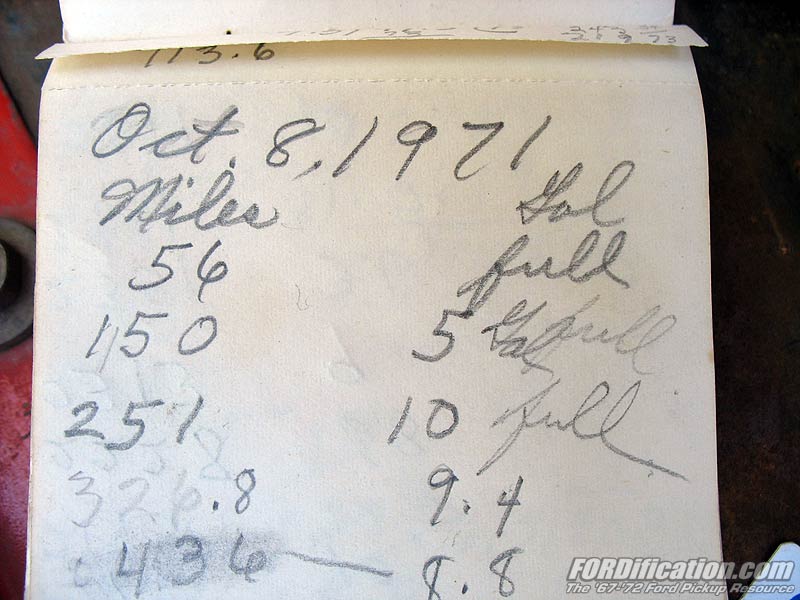 113.6
Oct. 8, 1971
Miles Gal
56 full
150 5 Gal full
251 10 full
326.8 9.4
436 8.8
FORDification.com
The '67-'72 Ford Pickup Resource